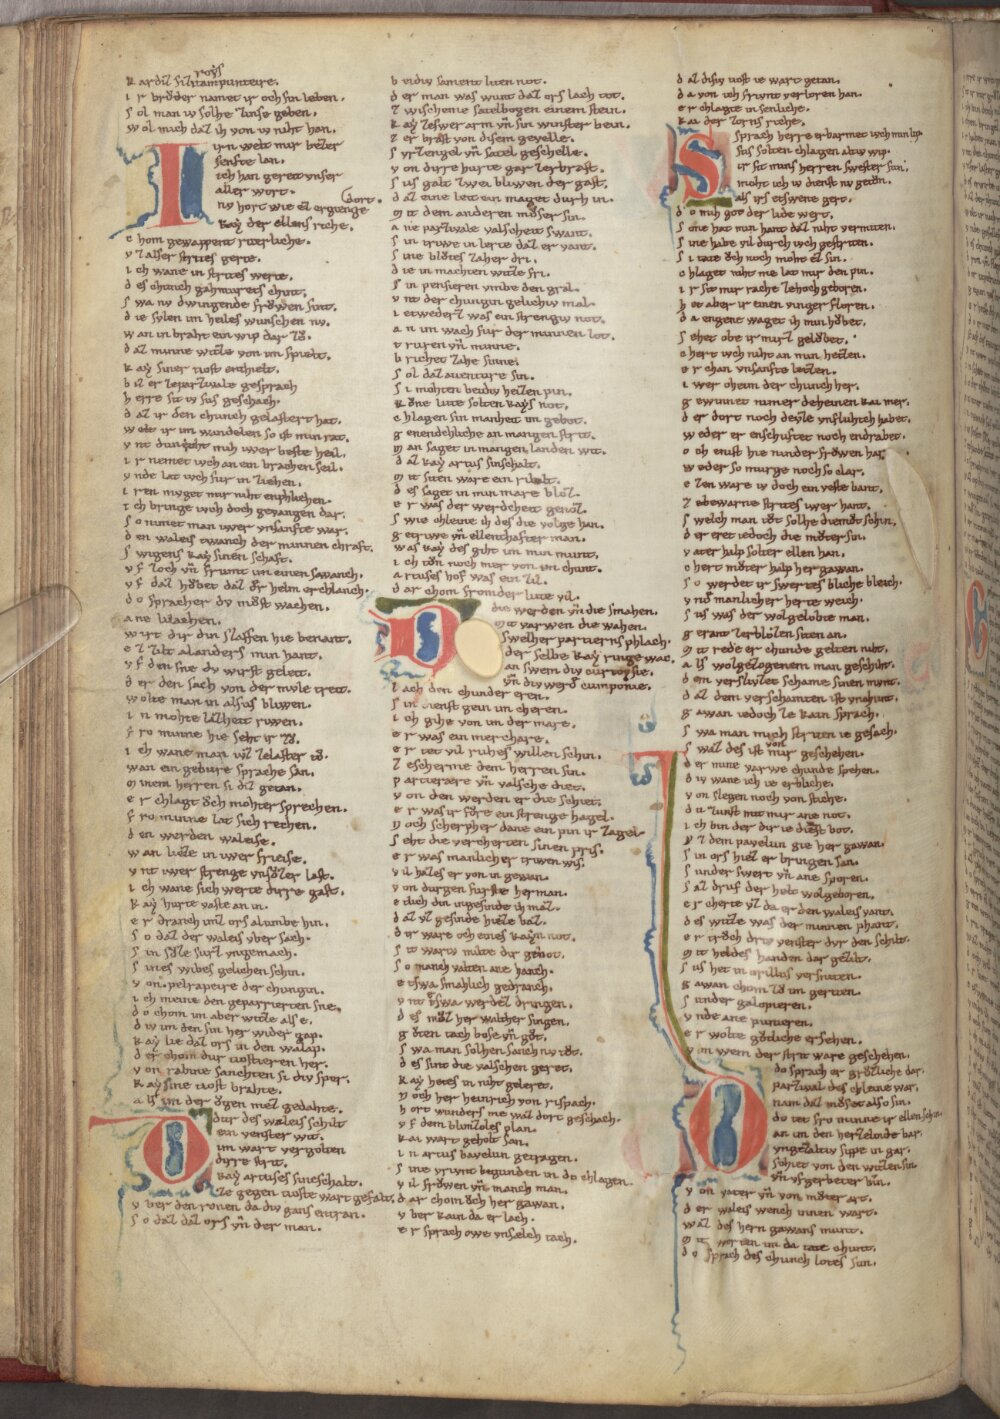 k ardiz fil tampunteire.
roys
i r brůder namet ir och sin leben.
s ol man iv solhe zinse geben.
w ol mich daz ih von iv niht han.
I irn welt mir bezzer
senfte lan.
ich han gereit ynser
aller wort.
nv hort wie ez ergienge
dort.
kay der ellens riche.
c hom gewappent riterliche.
v z alser strites gerte.
i ch wane in strites werte.
d es chunich gahmurets chint.
s wa nv dwingende frowen sint.
d ie svlen im heiles wunschen nv.
w an in braht ein wip dar zů.
d az minne witze von im spielt.
k ay siner tiost enthielt.
b iz er ze parzivale gesprach
h erre sit iv sus geschach.
d az ir den chunch gelastert hat.
w elt ir im wandelen so ist min rat.
v nt dunchet mih iwer beste heil.
i r nemet iych an ein brachen seil.
v nde lat iych fur in ziehen.
i ren myget mir niht enphliehen.
i ch bringe ivch doch gevangen dar.
s o nimet man iwer ynsanfte war.
d en waleis twanch der minnen chraft.
s wigens kay sinen schaft.
v f zoch vn frumt im einen swanch.
v f daz hobet daz der helm erchlanch.
d o spracher dv můst wachen.
a ne lilachen.
w irt dir din slaffen hie benant.
e z zilt al anders min hant.
v f den sne dv wirst geleit.
d er den sach von der mvle treit.
w olte man in alsus bliwen.
i n mohte lazheit riwen.
f ro minne hie seht ir zů.
i ch wane man ivz zelaster tů.
w an ein gebure sprache san.
m inem herren si diz getan.
e r chlagt och mohter sprechen.
f ro minne lat sich rechen.
d en werden waleise.
w an lieze in iwer frieise.
v nt iwer strenge vnsůzer last.
i ch wane sich werte dirre gast.
k ay hurte vaste an in.
e r dranch imz ors alumbe hin.
s o daz der waleis vber sach.
s in sůze surz vngemach.
s ines wibes gelichen schin.
v on pelrapeire der chungin.
i ch meine den geparrierten sne.
d o chom im aber witze als e.
d iv im den sin her wider gap.
k ay lie daz ors in den walap.
d er chom dur tiostieren her.
v on rabine sanchten si div sper.
k ay sine tiost brahte.
a ls im der ogen mez gedahte.
D dur des waleis schilt
ein venster wit.
im wart vergolten
dirre strit.
kay artuses sineschalt.
ze gegen tioste wart gefalt.
v ber den ronen da div gans entran.
s o daz daz ors vn der man.
b eidiv sament liten not.
d er man was wunt daz ors lach tot.
z wischenne satelbogen einem stein.
k ay zeswer arm vn sin winster bein.
z er brast von disem gevelle.
s vrzengel vn satel geschelle.
v on dirre hurte gar zerbrast.
s us galt zwei bliwen der gast.
d az eine leit ein maget durh in.
m it dem anderen můser sin.
a ne parzivale valscheit swant.
s in triwe in lerte daz er vant.
s ine blůtes zaher dri.
d ie in machten witze fri.
s in pensieren vmbe den gral.
v nt der chungin gelichiv mal.
i etwederz was ein strengiv not.
a n im wach fur der minnen lot.
t ruren vn minne.
b richet zahe sinne.
s ol daz aventure sin.
s i mohten beidiv heizen pin.
k ůne lute solten kays not.
c hlagen sin manheit im gebot.
g enendehliche an mangen strit.
m an saget in mangen landen wit.
d az kay artus sinschalt.
m it siten ware ein ribalt.
d es saget in min mare bloz.
e r was der werdecheit genoz.
s wie chleine ih des die volge han.
g etriwe vn ellenthafter man.
w as kay des giht im min munt.
i ch tůn noch mer von im chunt.
a rtuses hof was ein zil.
d ar chom fromder lute vil.
D die werden vn die smahen.
mit varwen die wahen.
swelher partierns phlach.
der selbe kay ringe wac.
an swem div curtoysie.
vn div werd cumponie.
l ach den chunder eren.
s in dienst gein im cheren.
i ch gihe von im der mare.
e r was ein merchare.
e r tet vil ruhes willen schin.
z escherme dem herren sin.
p artierare vn valsche diet.
v on den werden er die schiet.
e r was ir fůre ein strenge hagel.
n och scherpher dane ein pin ir zagel.
s eht die vercherten sinen pris.
e r was manlicher triwen wis.
v il hazes er von in gewan.
v on durgen furste herman.
e tlich din ingesinde ih maz.
d az vz gesinde hieze baz.
d ir ware och eines kayn not.
s it wariv milte dir gebot.
s o manch valten ane hanch.
e tswa smahlich gedranch.
v nt etswa werdez dringen.
d es můz her walther singen.
g ůten tach bose vn gůt.
s wa man solhen sanch nv tůt.
d es sint die valschen geret.
k ay hetes in niht geleret.
n och her heinrich von rispach.
h ort wunders me waz dort geschach.
v f dem blimzoles plan.
k ai wart geholt san.
i n artus pavelun getragen.
s ine vriwnt begunden in do chlagen.
v il frowen vn manch man.
d ar chom och her gawan.
v ber kain da er lach.
e r sprach owe vnsælech tach.
d az disiv tiost ie wart getan.
d a von ich friwnt verloren han.
e r chlagte in senliche.
k ai der zorns riche.
S sprach herre erbarmet ivch min lip.
sus solten chlagen altiv wip.
ir sit mins herren swester sun.
moht ich iv dienst nv getůn.
als irs etswene gert.
d o mih got der lide wert.
s one hat min hant daz niht vermiten.
s ine habe vil durch ivch gestriten.
s i tate och noch moht ez sin.
c hlaget niht me lat mir den pin.
i r sit mir rache zehoch geboren.
h et aber ir einen vinger floren.
d a engene waget ih min hobet.
s ehet obe ir mirz gelobet.
c hert ivch niht an min hetzen.
e r chan vnsanfte letzen.
i wer oheim der chunch her.
g ewinnet nimer deheinen kai mer.
d er dort noch deyle vnfluhteh habet.
w eder er enschuftet noch endrabet.
o ch enist hie ninder frowen har.
w eder so murge noch so clar.
e zen ware iv doch ein veste bant.
z ebewarne strites iwer hant.
s welch man tůt solhe diemůt schin.
d er eret iedoch die můtersin.
v ater halp solter ellen han.
c hert můter halp her gawan.
s o werdet ir swertes bliche bleich.
v nd manlicher herte weich.
s us was der wolgelobte man.
g erant zerblozen siten an.
m it rede er chunde gelten niht.
a ls wolgezogenem man geschiht.
d em verslvzet schame sinen mvnt.
d az dem verschamten ist vnchunt.
g awan iedoch ze kain sprach.
s wa man mich striten ie gesach.
s waz des ist mir geschehen.
von
der mine varwe chunde spehen.
d iv wane ich ie erbliche.
v on slegen noch von stiche.
d u zurnst mit mir ane not.
i ch bin der dir ie dienst bot.
v z dem pavelun gie her gawan.
s in ors hiez er bringen san.
s under swert vn ane sporen.
s az druf der helt wolgeboren.
e r cherte vz da er den waleis vant.
d es witze was der minnen phant.
e r trůch driv venster dvr den schilt.
m it heldes handen dar gezilt.
s us het in orillus versniten.
g awan chom zů im geriten.
s under galopieren.
v nde ane punieren.
e r wolte gůtliche ersehen.
v on wem der strit ware geschehen.
D do sprach er grůzliche dar.
parzival des chleine war.
nam daz můset also sin.
do tet fro minne ir ellen schin.
an im den herzeloude bar.
vngezaltiv sippe in gar.
schiet von den witzen sin.
vn vf gerbeter bin.
v on vater vn von můter art.
d er waleis wench innen wart.
w az des hern gawans munt.
m it worten im da tate chunt.
d o sprach des chunch lotes sun.